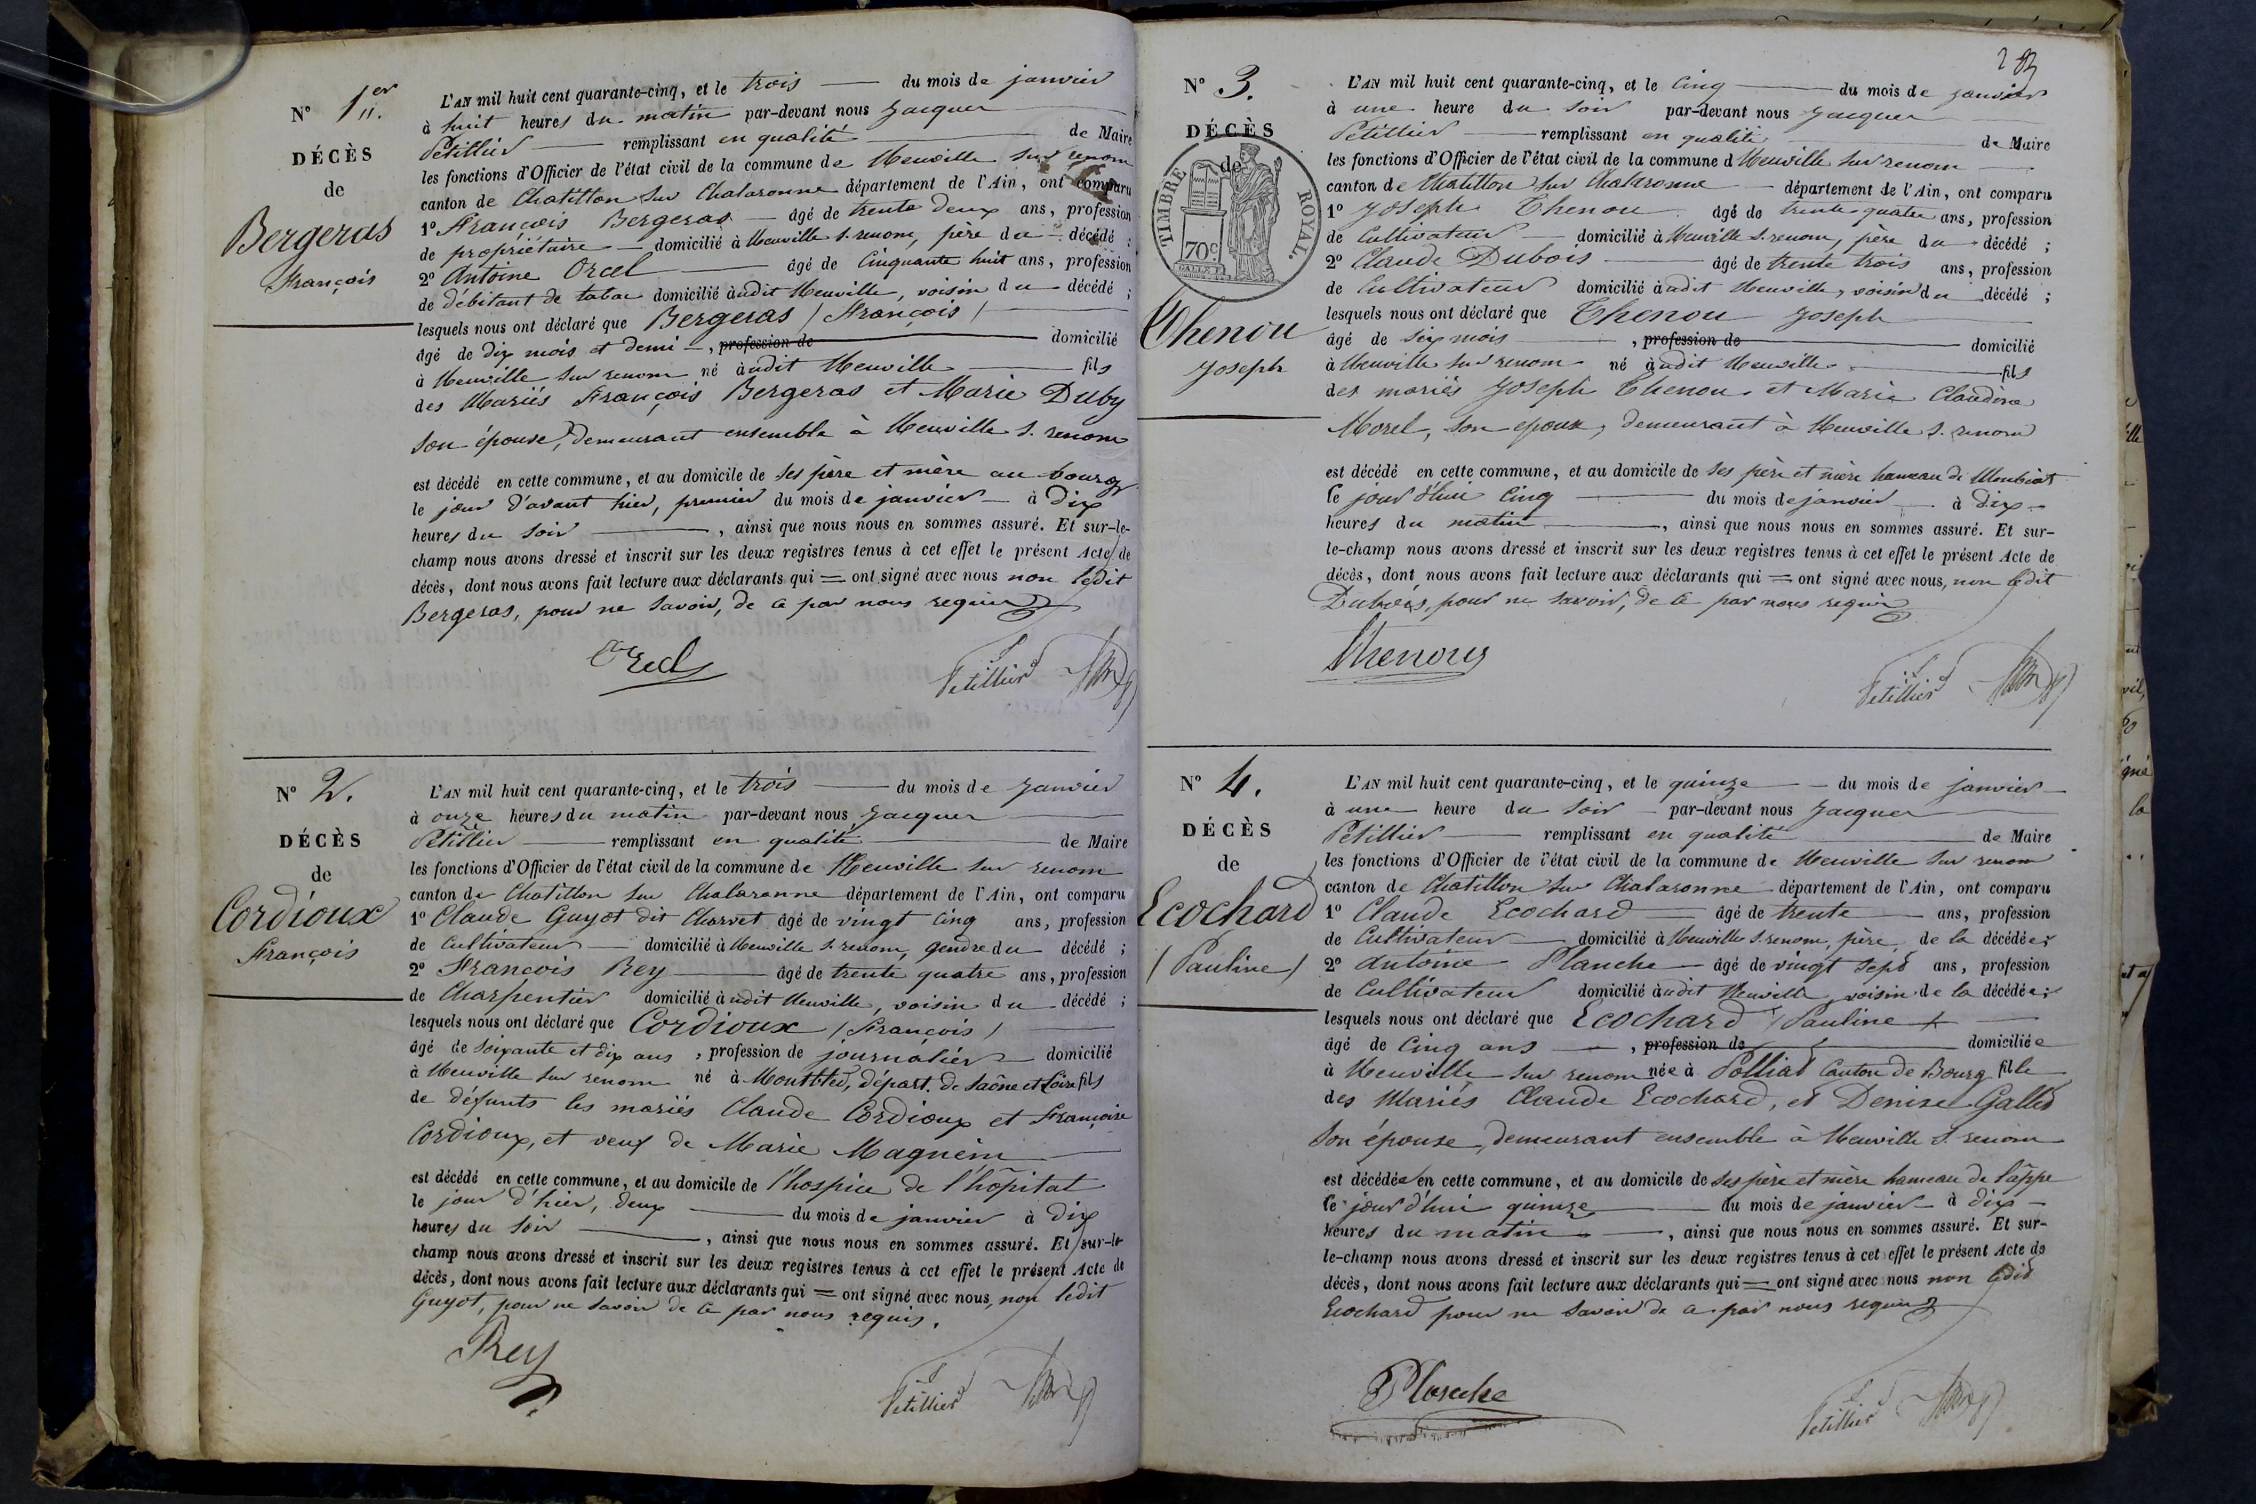 N° 1er.
DÉCÈS
de
Bergeras
François
L'AN mil huit cent quarante-cinq, et le trois du mois de janvier
à huit heures du matin par-devant nous Jacques
Petillier remplissant en qualité de Maire
les fonctions d'Officier de l'état civil de la commune de Neuville sur renom
canton de Chatillon sur Chalaronne département de l'Ain, ont comparu
1° François Bergeras âgé de trente deux ans, profession
de propriétaire domicilié à Neuville s. renom, père du décédé ;
2° Antoine Orcel âgé de cinquante huit ans, profession
de débitant de tabac domicilié audit Neuville, voisin du décédé ;
lesquels nous ont déclaré que Bergeras / François /
âgé de dix mois et demi, profession de domicilié
à Neuville sur renom né audit Neuville fils
des Mariés François Bergeras et Marie Duby
son épouse, demeurant ensemble à Neuville s. renom
est décédé en cette commune, et au domicile de ses père et mère au bourg
le jour d'avant hier, premier du mois de janvier à dix
heures du soir, ainsi que nous nous en sommes assuré. Et sur-le-
champ nous avons dressé et inscrit sur les deux registres tenus à cet effet le présent Acte de
décès, dont nous avons fait lecture aux déclarants qui = ont signé avec nous non ledit
Bergeras, pour ne savoir, de ce par nous requis
Orcel
Petillier
N° 2.
DÉCÈS
de
Cordioux
François
L'AN mil huit cent quarante-cinq, et le trois du mois de janvier
à onze heures du matin par-devant nous Jacques
Petillier remplissant en qualité de Maire
les fonctions d'Officier de l'état civil de la commune de Neuville sur renom
canton de Chatillon sur Chalaronne département de l'Ain, ont comparu
1° Claude Guyot dit Charvet âgé de vingt cinq ans, profession
de Cultivateur domicilié à Neuville s. renom, gendre du décédé ;
2° François Rey âgé de trente quatre ans, profession
de Charpentier domicilié audit Neuville, voisin du décédé ;
lesquels nous ont déclaré que Cordioux / François /
âgé de soixante et dix ans, profession de journalier domicilié
à Neuville sur renom né à départ. de Saône et Loire fils
de défunts les mariés Claude Cordioux et Françoise
Cordioux, et veuf de Marie Magnein
est décédé en cette commune, et au domicile de l'hospice de l'hôpital
le jour d'hier, deux du mois de janvier à dix
heures du soir, ainsi que nous nous en sommes assuré. Et sur-le-
champ nous avons dressé et inscrit sur les deux registres tenus à cet effet le présent Acte de
décès, dont nous avons fait lecture aux déclarants qui = ont signé avec nous, non ledit
Guyot, pour ne savoir de ce par nous requis.
Rey
Petillier
N° 3.
DÉCÈS
de
TIMBRE ROYAL.
70 c.
Thenou
Joseph
L'AN mil huit cent quarante-cinq, et le cinq du mois de janvier
à une heure du soir par-devant nous Jacques
Petillier remplissant en qualité de Maire
les fonctions d'Officier de l'état civil de la commune d Neuville sur renom
canton de Chatillon sur Chalaronne département de l'Ain, ont comparu
1° Joseph Thenou âgé de trente quatre ans, profession
de Cultivateur domicilié à Neuville s. renom, père du décédé ;
2° Claude Dubois âgé de trente trois ans, profession
de Cultivateur domicilié audit Neuville, voisin du décédé ;
lesquels nous ont déclaré que Thenou Joseph
âgé de six mois, profession de domicilié
à Neuville sur renom né audit Neuville fils
des mariés Joseph Thenou et Marie Claudine
Morel, son epoux, demeurant à Neuville s. renom
est décédé en cette commune, et au domicile de ses père et mère hameau de Monbiat
le jour d'hui cinq du mois de janvier à dix
heures du matin, ainsi que nous nous en sommes assuré. Et sur-
le-champ nous avons dressé et inscrit sur les deux registres tenus à cet effet le présent Acte de
décès, dont nous avons fait lecture aux déclarants qui = ont signé avec nous, non ledit
Dubois, pour ne savoir, de ce par nous requis
Thenoug
Petillier
N° 4.
DÉCÈS
de
Ecochard
/ Pauline /
L'AN mil huit cent quarante-cinq, et le quinze du mois de janvier
à une heure du soir par-devant nous Jacques
Petillier remplissant en qualité de Maire
les fonctions d'Officier de l'état civil de la commune de Neuville sur renom
canton de Chatillon sur Chalaronne département de l'Ain, ont comparu
1° Claude Ecochard âgé de trente ans, profession
de Cultivateur domicilié à Neuville s. renom, père de la décédée ;
2° Antoine Planche âgé de vingt sept ans, profession
de Cultivateur domicilié audit Neuville voisin de la décédée ;
lesquels nous ont déclaré que Ecochard / Pauline /
âgé de cinq ans, profession de domiciliée
à Neuville sur renom née à Polliat Canton de Bourg fille
des Mariés Claude Ecochard, et Denise Gallet
Son épouse, demeurant ensemble à Neuville s. renom
est décédée en cette commune, et au domicile de ses père et mère hameau de Lappe
le jour d'hui quinze du mois de janvier à dix
heures du matin, ainsi que nous nous en sommes assuré. Et sur-
le-champ nous avons dressé et inscrit sur les deux registres tenus à cet effet le présent Acte de
décès, dont nous avons fait lecture aux déclarants qui = ont signé avec nous non ledit
Ecochard pour ne savoir de ce par nous requis
Planche
Petillier